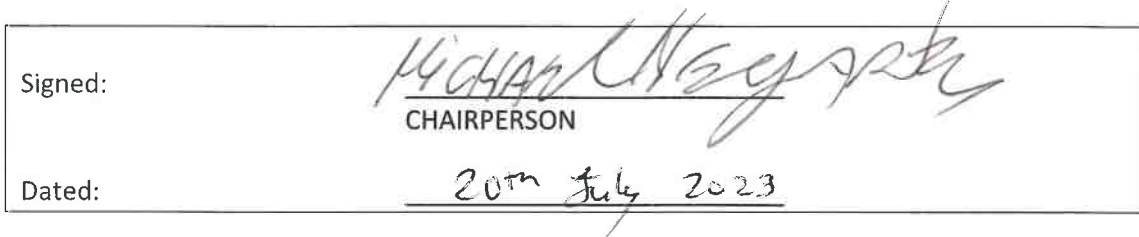 Signed: Michael
CHAIRPERSON
Dated: 20th July 2023